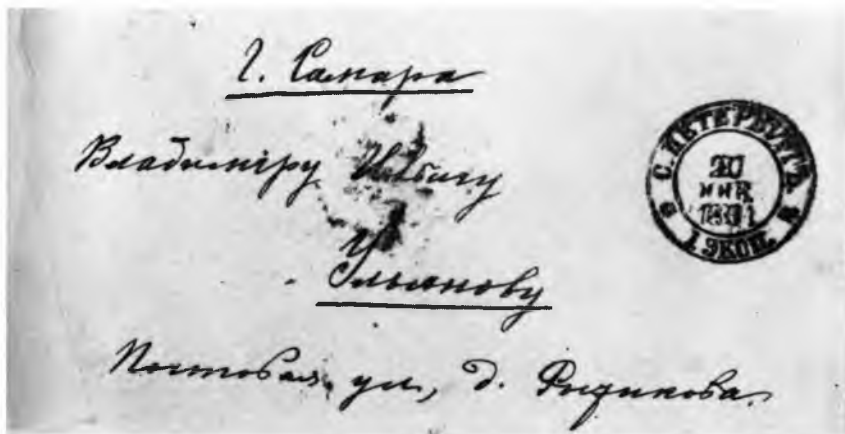 г. Самара
Владиміру Ильичу
Ульянову
Почтовая ул., д. Рытикова.
С. ПЕТЕРБУРГЪ
20
ЯНВ.
1891
1 ЭКСП.